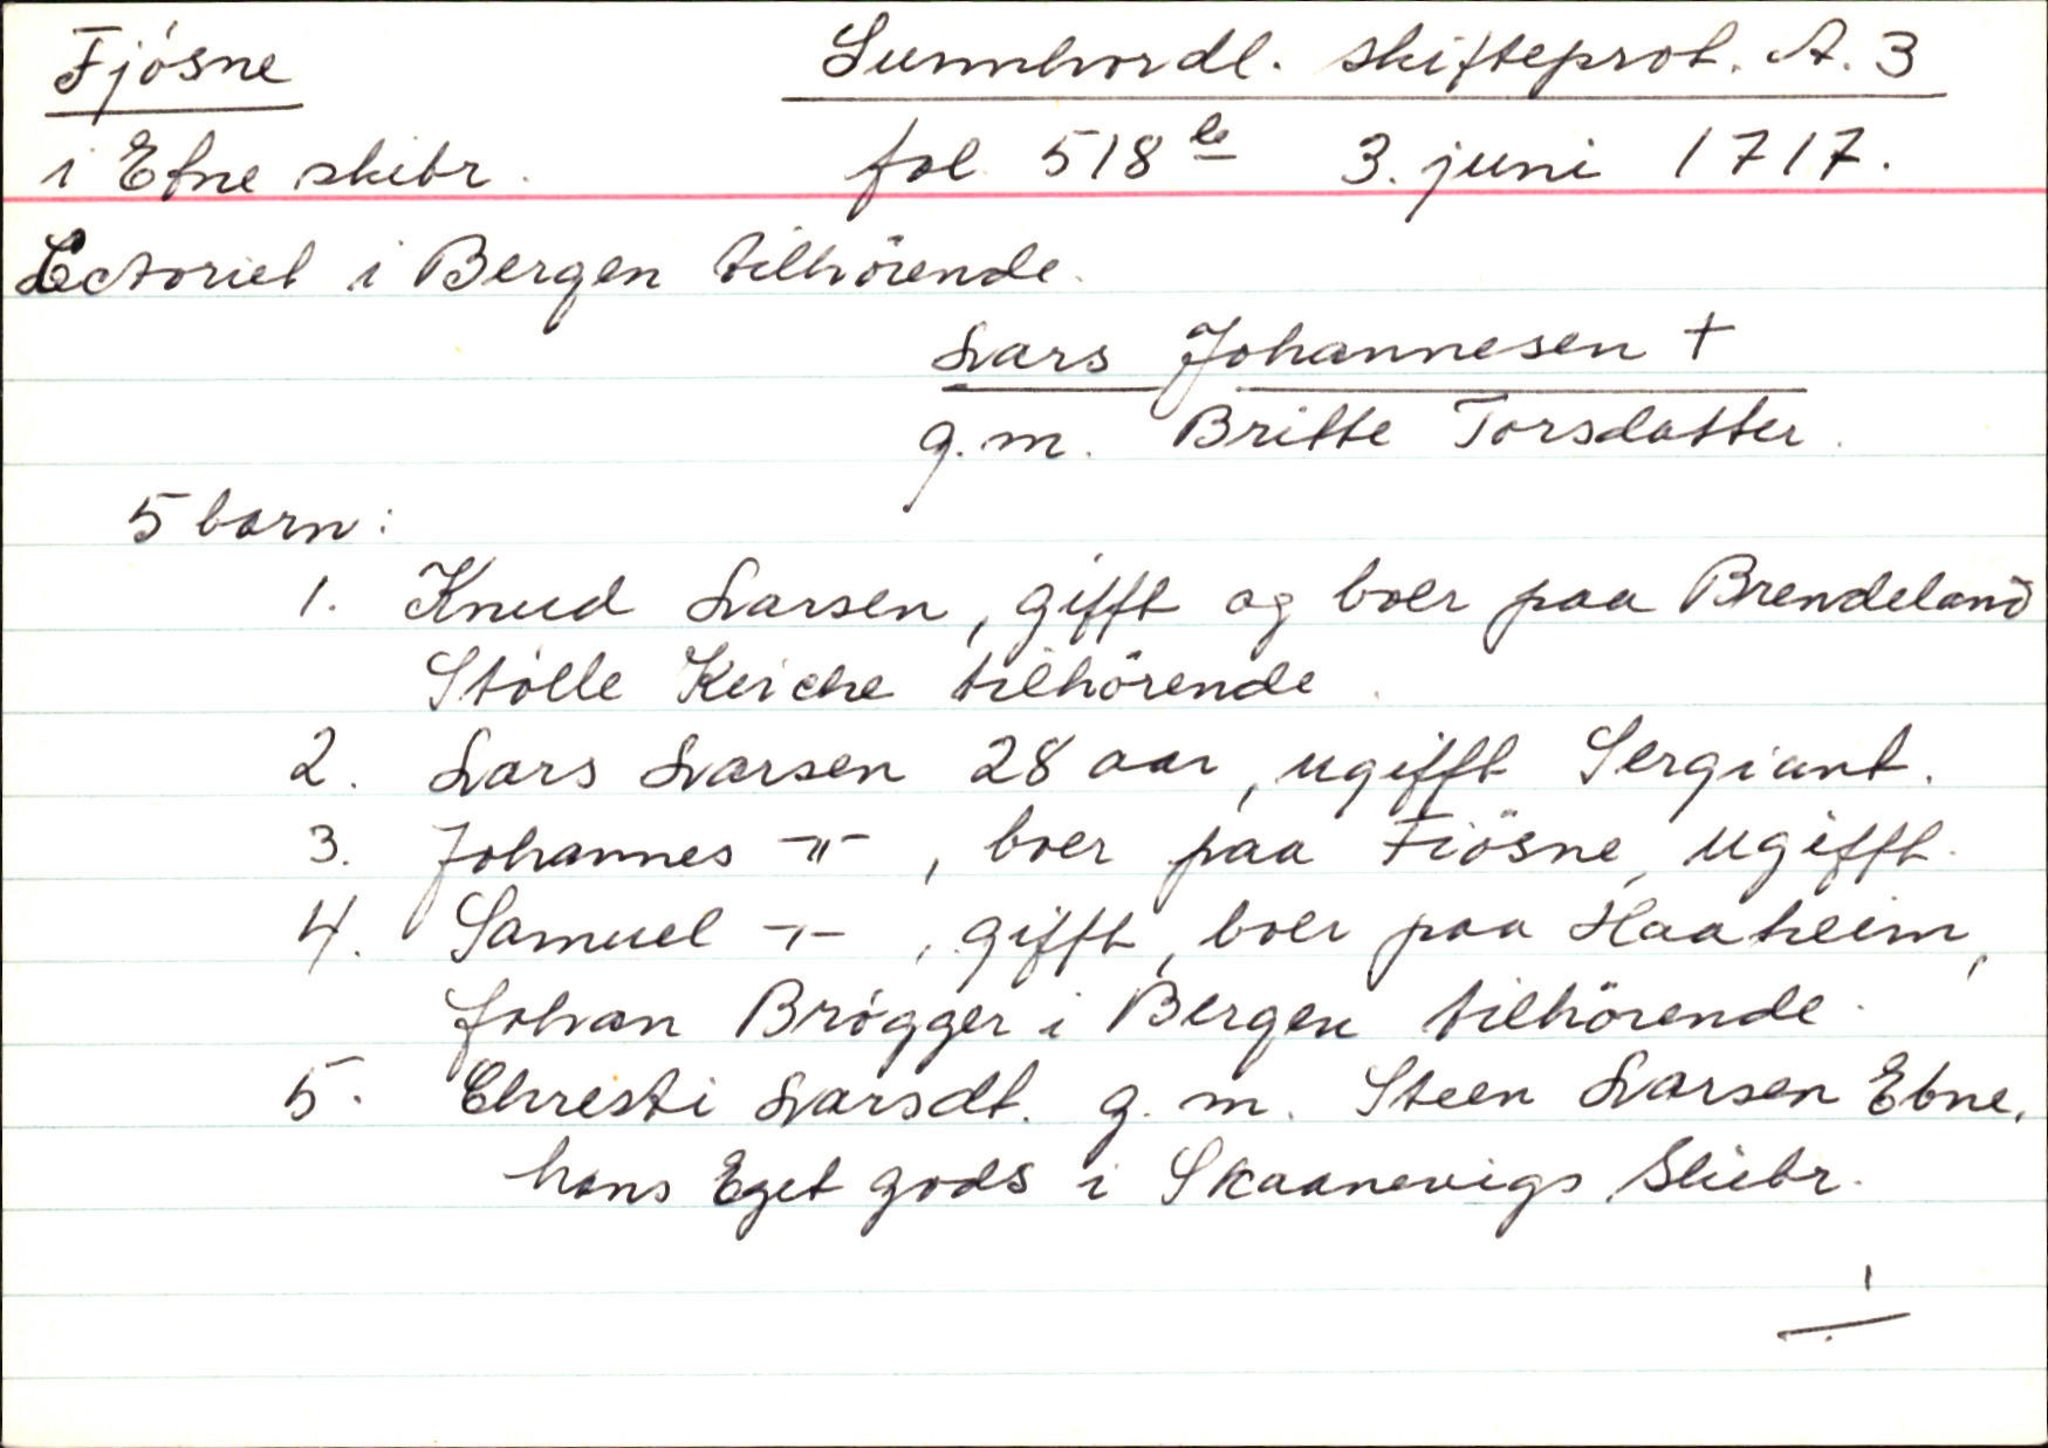 Fjósne Sunnhordl. skifteprot. A. 3
i Etne skibr. fol. 518 b 3. juni 1717.
Lectoriet i Bergen tilhörende.
Lars Johannesen +
g.m. Britte Torsdatter.
5 born:
1. Knud Larsen, gifft og boer paa Brendeland
Stölle Kirche tilhörende.
2. Lars Larsen 28 aar, ugifft Sergiant.
3. Johannes -"-, boer paa Fiösne, ugifft.
4. Samuel -"-, gifft, boer paa Haaheim,
Johan Brögger i Bergen tilhörende.
5. Christi Larsdt. g. m. Steen Larsen Etne,
hans Eget gods i Skaanevigs Skibr.
1